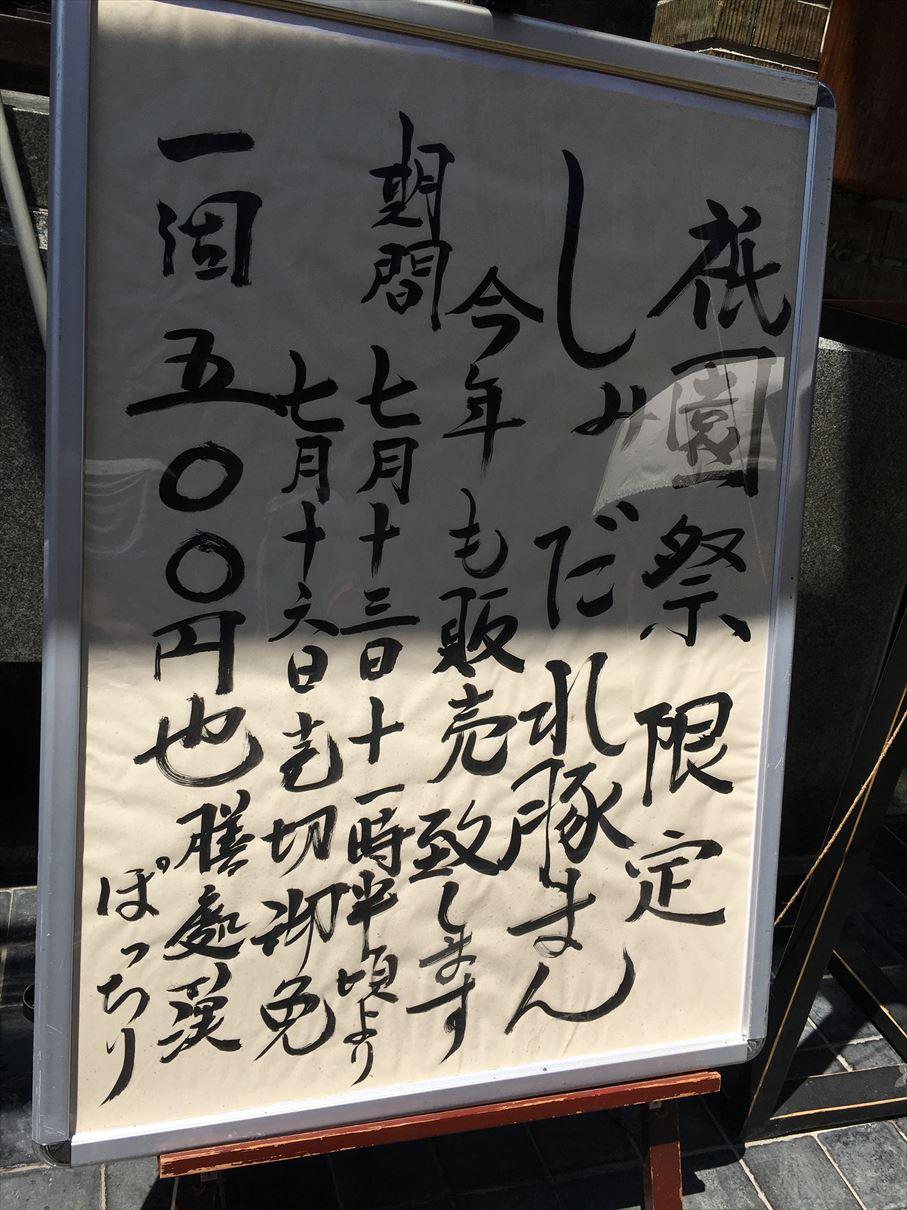 祇園祭限定
しみだれ豚まん
今年も販売致します
期間
七月十三日十一時半頃より
七月十六日売切御免
一個五〇〇円也
膳處漢
ぽっちり